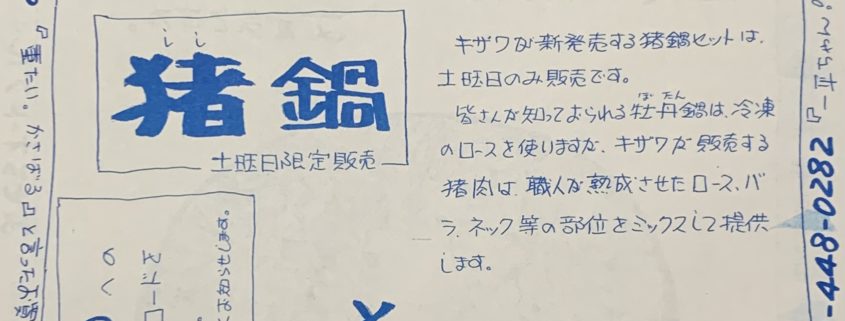 『重たい。かさばる』と言ったお
しし
猪鍋
土旺日限定販売
キザワが新発売する猪鍋セットは、
土旺日のみ販売です。
皆さんが知っておられる牡丹鍋は、冷凍
ぼたん
のロースを使りますが、キザワが販売する
猪肉は、職人が熟成させたロース、バ
ラ、ネック等の部位をミックスして提供
します。
お知らせします。
-448-0282